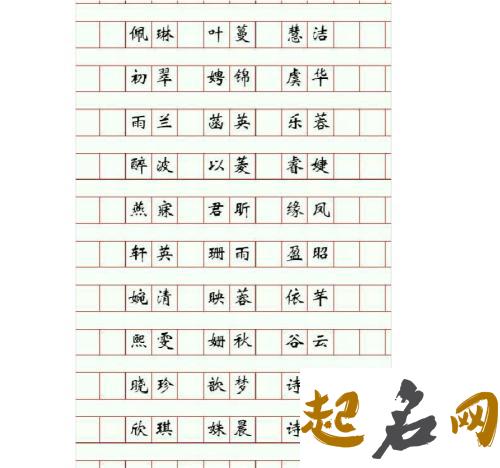 佩琳 叶蔓 慧洁
初翠 娉锦 虞华
雨兰 菡英 乐蓉
醉波 以菱 睿婕
燕寐 君昕 缘凤
轩英 珊雨 盈昭
婉清 映蓉 依芊
熙雯 姗秋 谷云
晓珍 歆梦 诗
欣琪 姝晨 诗
起名网